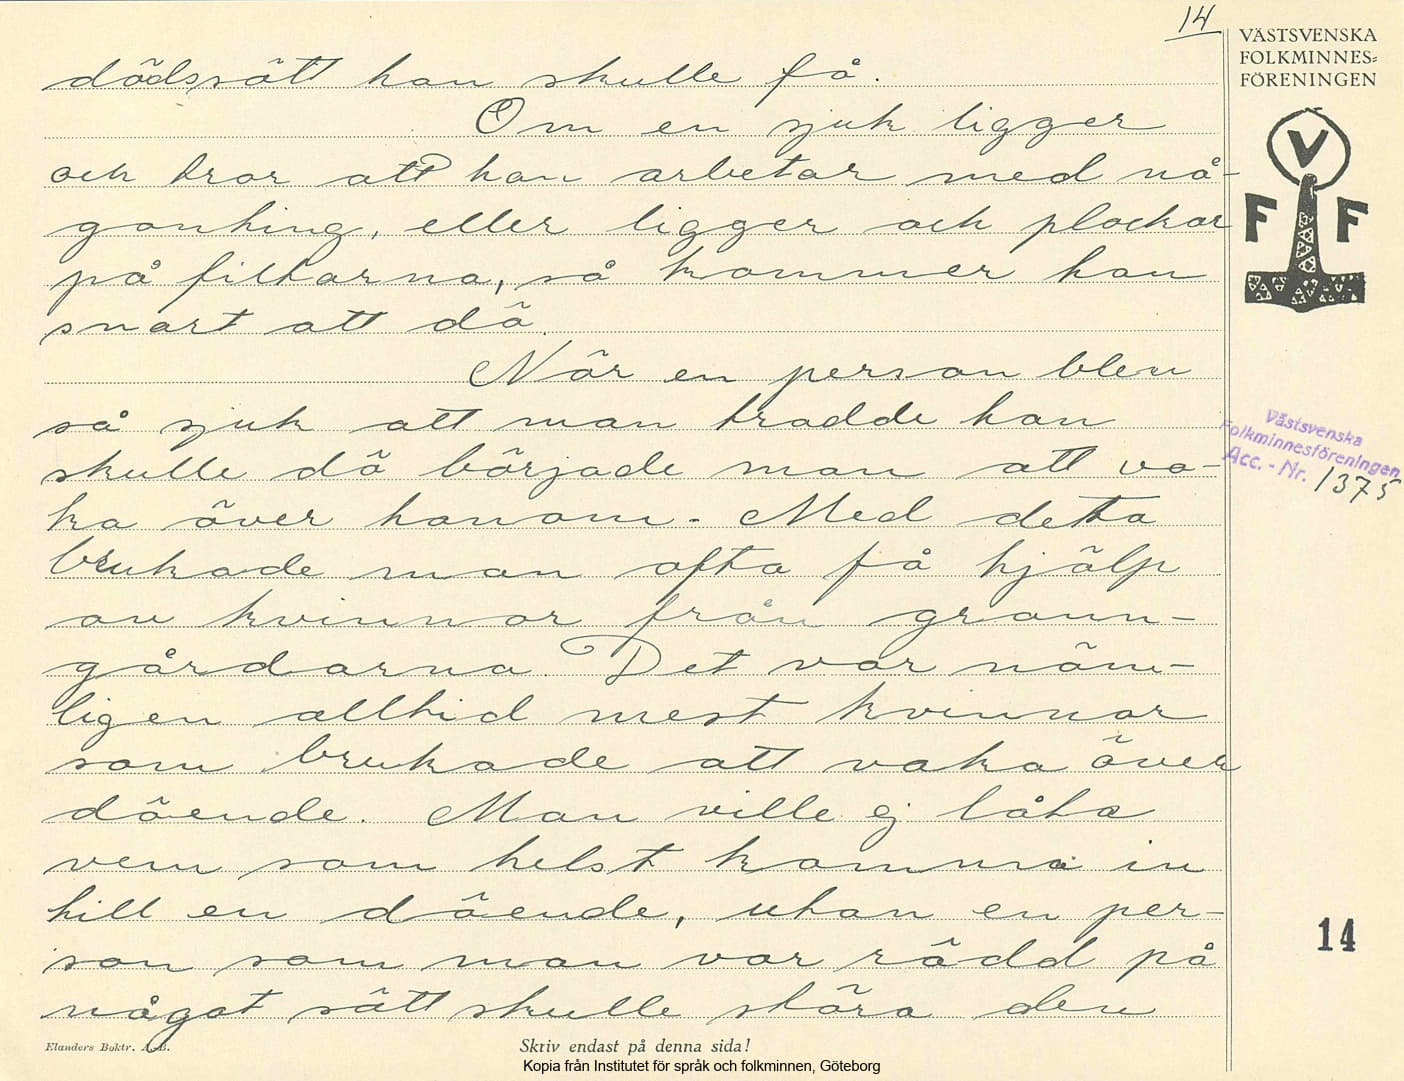 14
VÄSTSVENSKA
FOLKMINNES=
FÖRENINGEN
V
F F
dödssätt han skulle få.
Om en sjuk ligger
och tror att han arbetar med nå-
gonting, eller ligger och plockar
på filtarna, så kommer han
snart att dö.
När en person blev
så sjuk att man trodde han
skulle dö började man att va-
ka över honom. Med detta
brukade man ofta få hjälp
av kvinnor från grann-
gårdarna. Det var näm-
ligen alltid mest kvinnor
som brukade att vaka över
döende. Man ville ej låta
vem som helst komma in
till en döende, utan en per-
son som man var rädd på
något sätt skulle störa den
Västsvenska
Folkminnesföreningen
Acc. - Nr. 1375
14
Elanders Boktr. A.-B.
Skriv endast på denna sida!
Kopia från Institutet för språk och folkminnen, Göteborg